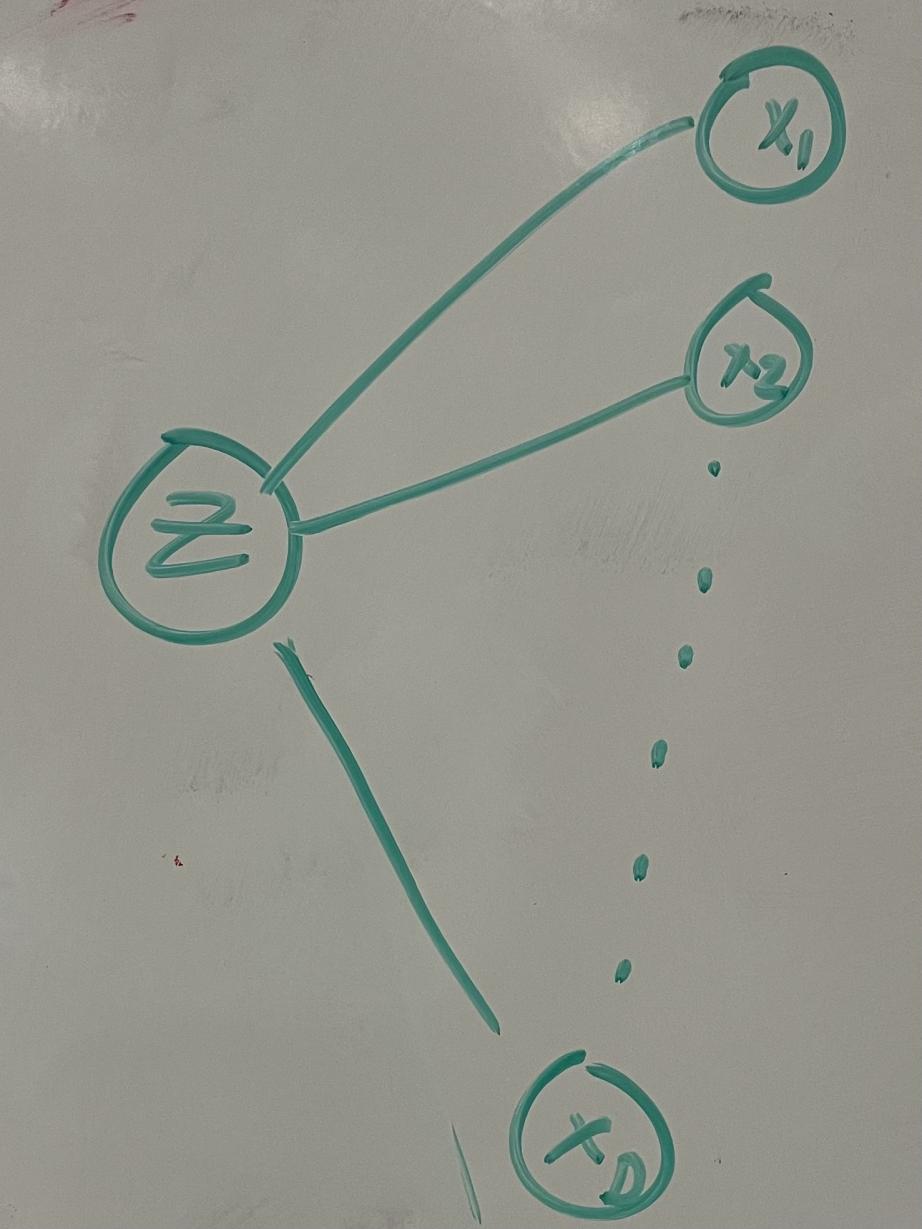 x₁
x₂
Z
x_D